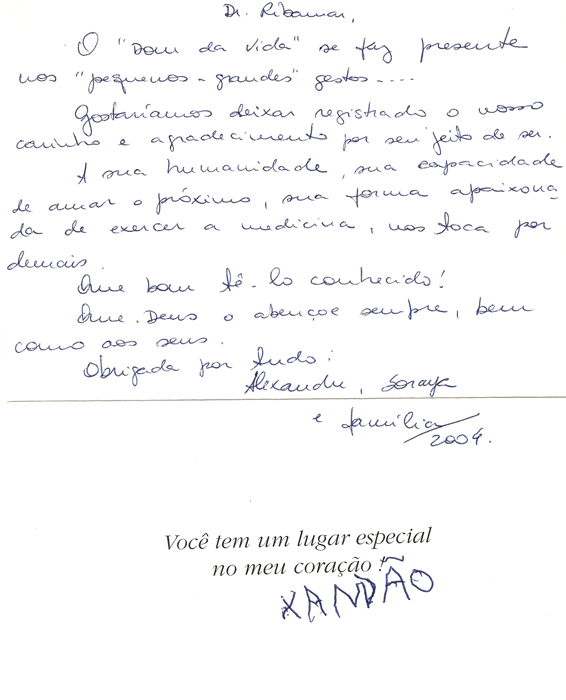 Dr. Ribamar,
O "Dom da vida" se faz presente
nos "pequenos - grandes" gestos....
Gostaríamos deixar registrado o nosso
carinho e agradecimento por seu jeito de ser.
A sua humanidade, sua capacidade
de amar o próximo, sua forma apaixona
da de exercer a medicina, nos toca por
demais.
Que bom tê-lo conhecido!
Que Deus o abençoe sempre, bem
como aos seus.
Obrigada por tudo:
Alexandre, Soraya
e família
2004.
Você tem um lugar especial
no meu coração!
XANDÃO